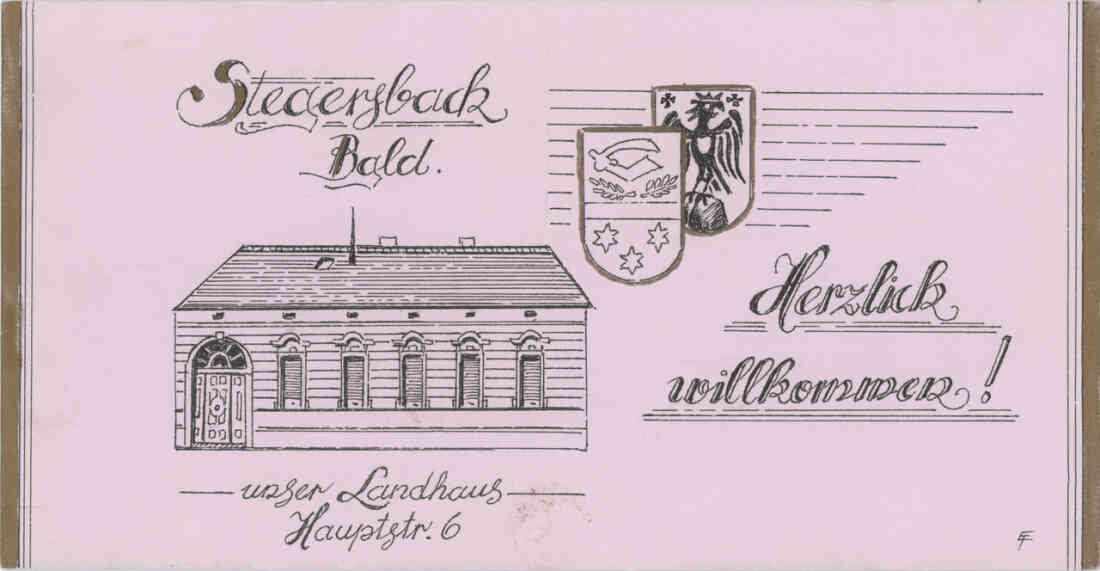 Stegersbach
Bgld.
Herzlich
willkommen!
unser Landhaus
Hauptstr. 6